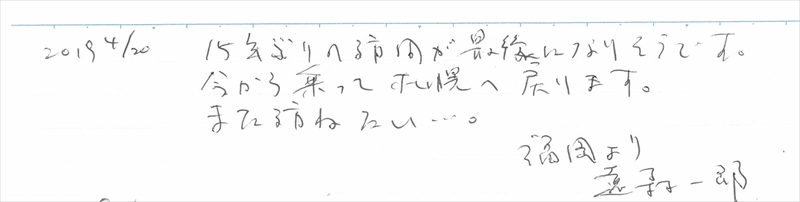 2019 4/20 15年ぶりの訪問が最後になりそうです。
今から乗って札幌へ戻ります。
また訪ねたい…。
福岡より
一郎